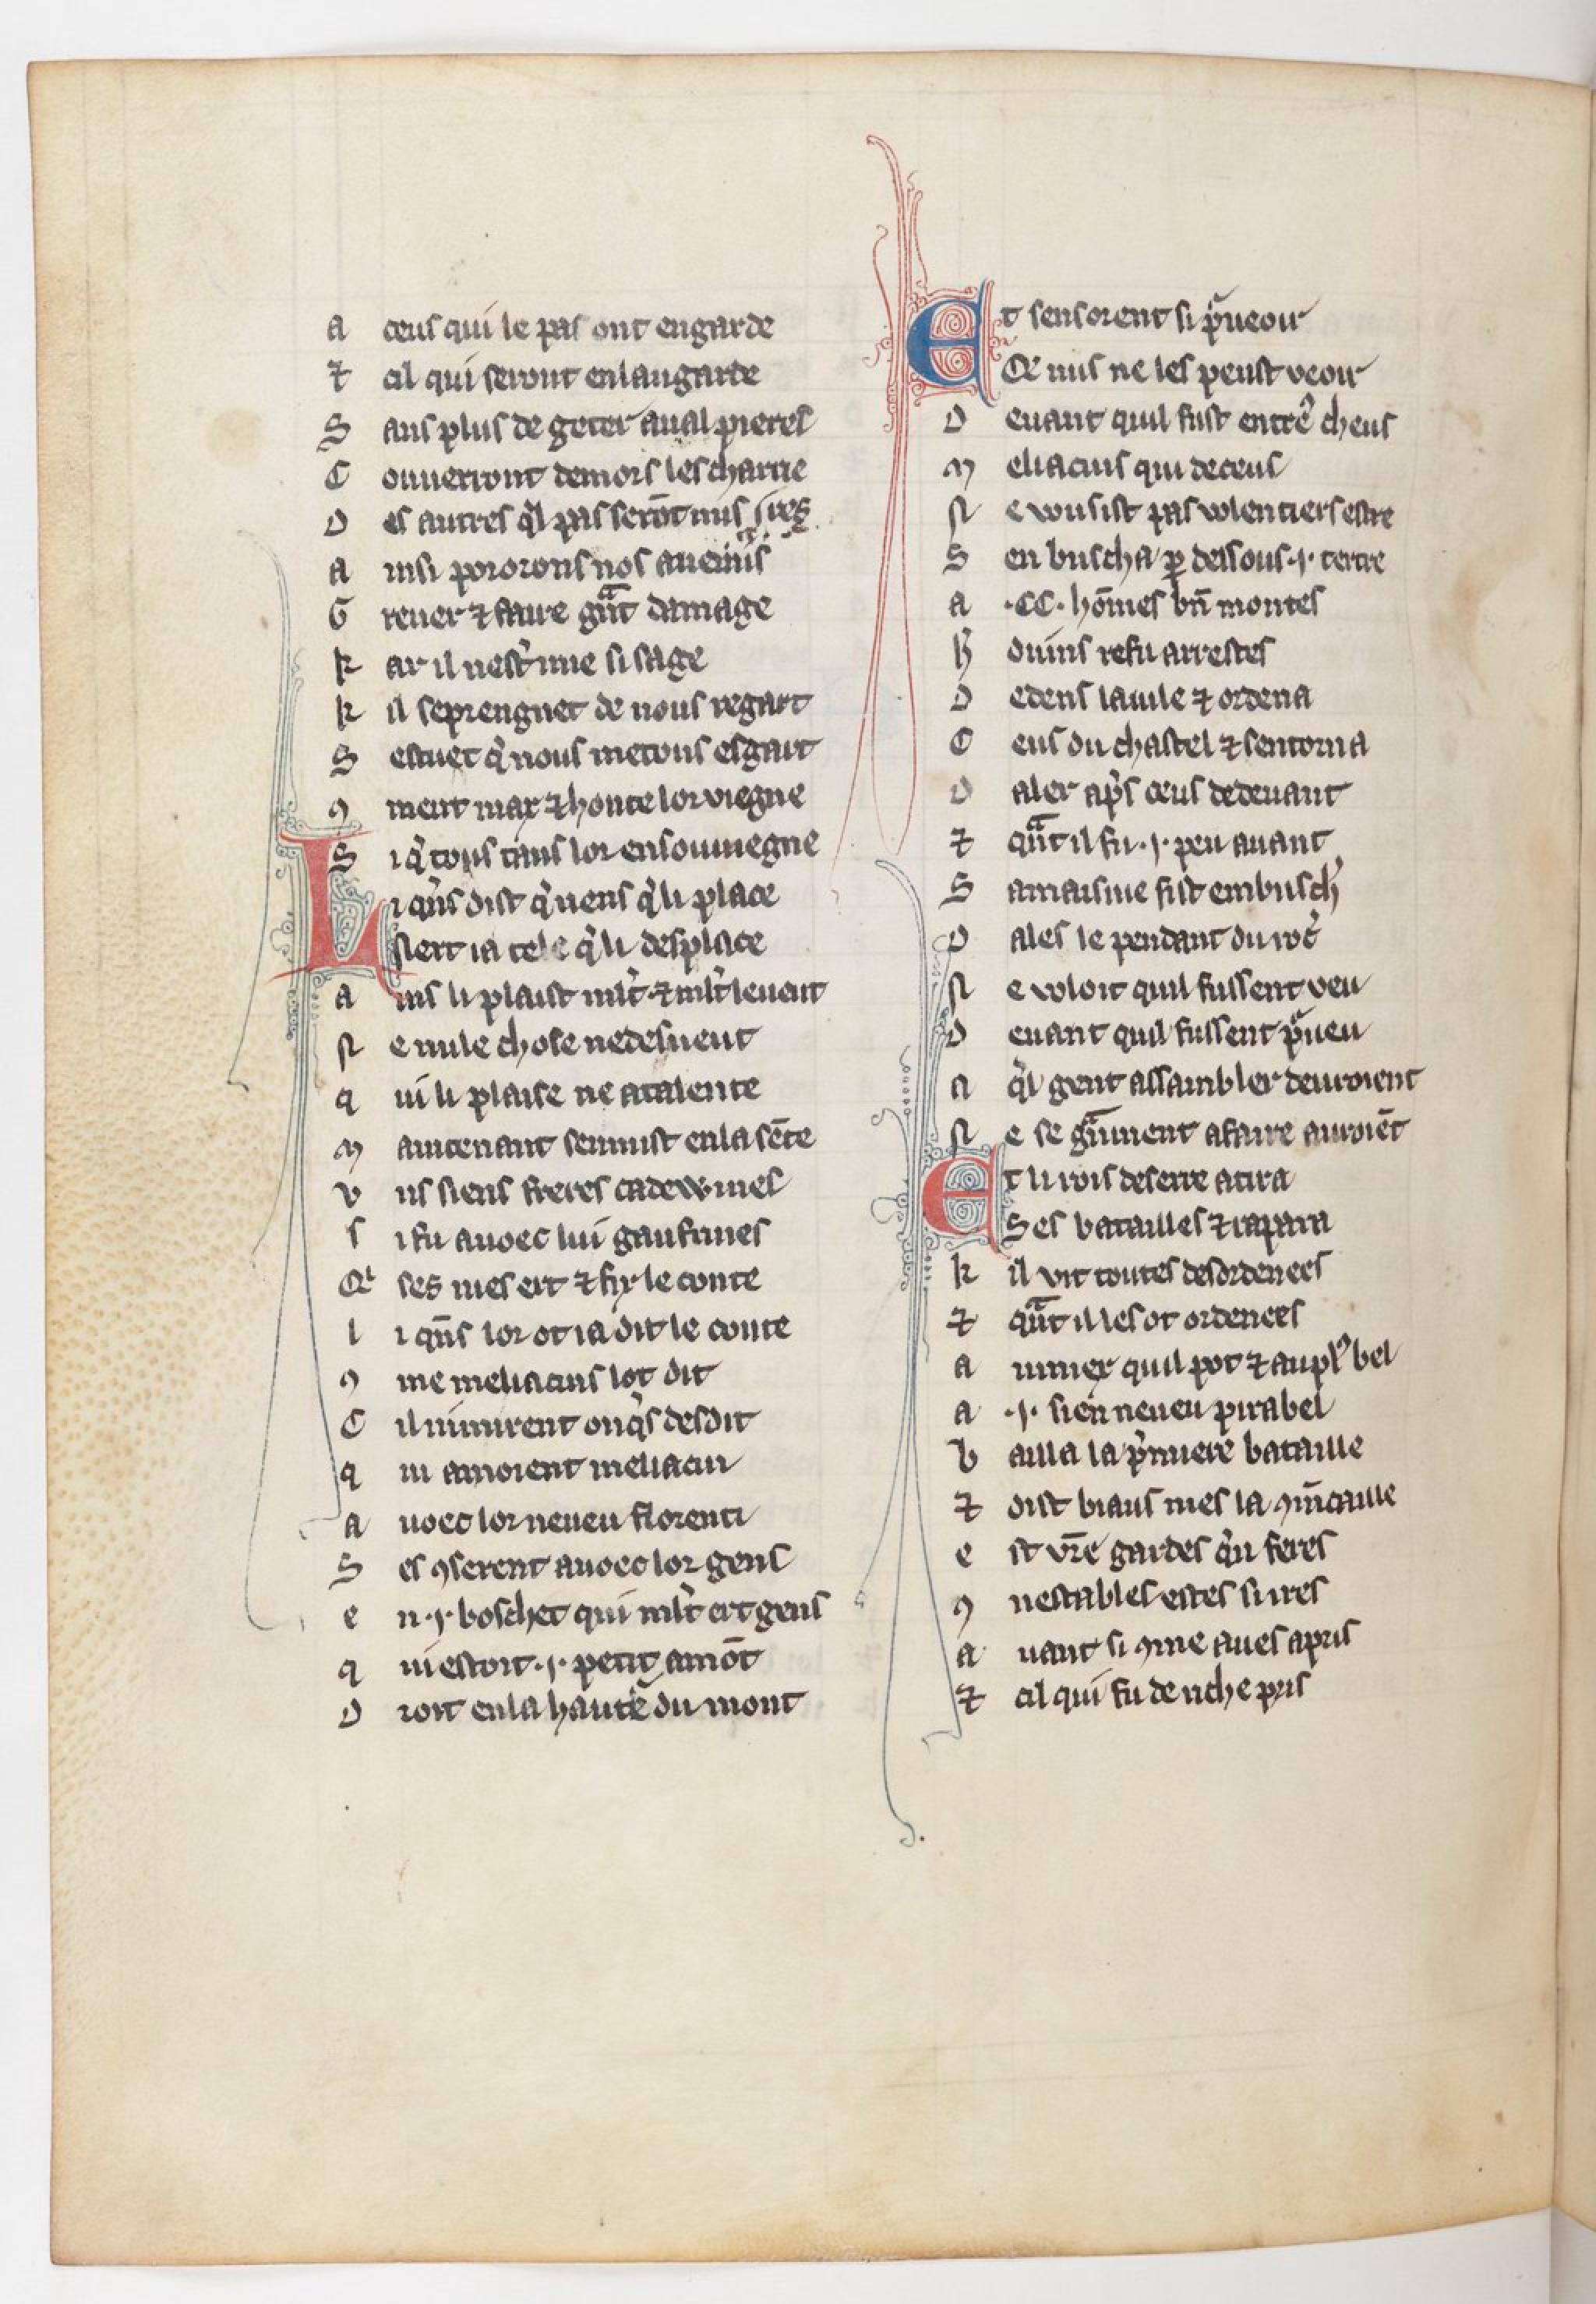 A ceus qui le pas ont engarde
⁊ cil qui seront enlangarde
S ans plus de geter aual pieres
C ouuerront demors les charrie
D es autres q̾l pas serōt mis
A insi pororons nos
G reuer ⁊ faire gͣnt damage
K ar il nest mie si sage
K il seprengnet de nous regart
S estuet q̾ nous metons esgart
ꝯ ment max ⁊ honte lor viegne
S i q̾ tous tans lor ensouuiegne
L i q̾ns dist q̾ nens q̾ li place
N iert ia cele q̾ li desplace
A ins li plaist ml̾t ⁊ ml̾t leuent
N e nule chose nedesuent
Q ui li plaise ne atalente
M aintenant senmist enla sēte
V ns siens freres
S i fu auoec lui gaufrines
Qͥ ses nies ert ⁊ fix le conte
L i qn̄s lor ot ia dit le conte
ꝯ me meliacins lot dit
C il nimirent onq̾s desdit
Q ui amoient meliacin
A uoec lor neueu florenti
S es ꝯserent auoec lor gens
E n ·i· boschet qui ml̾t ert gens
Q ui estoit ·i· petit amōt
D roit enla haute du mont
Et sensorent si pͣueoir
Qe nus ne les peust veoir
D euant quil fust entre cheus
M eliacins qui deceus
N e vousist pas volentiers estre
S en buscha ꝑ dessous ·i· tertre
A ·CC· hōmes bn̄ montes
H ouins refu arrestes
D edens lauile ⁊ ordena
C eus du chastel ⁊ sentorna
D aler ap̾s ceus dedeuant
⁊ qͣnt il fu ·i· peu auant
S amaisnie fist embusch̾
D ales le pendant du roc̾
N e voloit quil fussent veu
D euant quil fussent pͣueu
A q̾l gent assambler deuroient
N e se gͣnment afaire auroiēt
Et li rois deserre atira
Ses batailles ⁊ rapara
K il vit toutes desordenees
⁊ qͣnt il les ot ordenees
A u miex quil pot ⁊ au pl᷒ bel
A ·i· sien neueu pirabel
B ailla la p̾miere bataille
⁊ dist biaus nies la ꝯmēcaille
E st vr̄e gardes q̾n feres
ꝯ nestables estes si ires
A uant si ꝯme aues apris
⁊ cil qui fu de riche pris